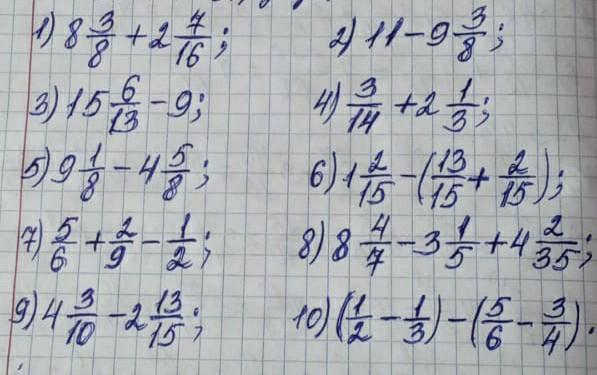 1) 8 3/8 + 2 7/16; 2) 11 - 9 3/8;
3) 15 6/13 - 9; 4) 3/14 + 2 1/3;
5) 9 1/8 - 4 5/8; 6) 1 2/15 - (13/15 + 2/15);
7) 5/6 + 2/9 - 1/2; 8) 8 4/7 - 3 1/5 + 4 2/35;
9) 4 3/10 - 2 13/15; 10) (1/2 - 1/3) - (5/6 - 3/4).